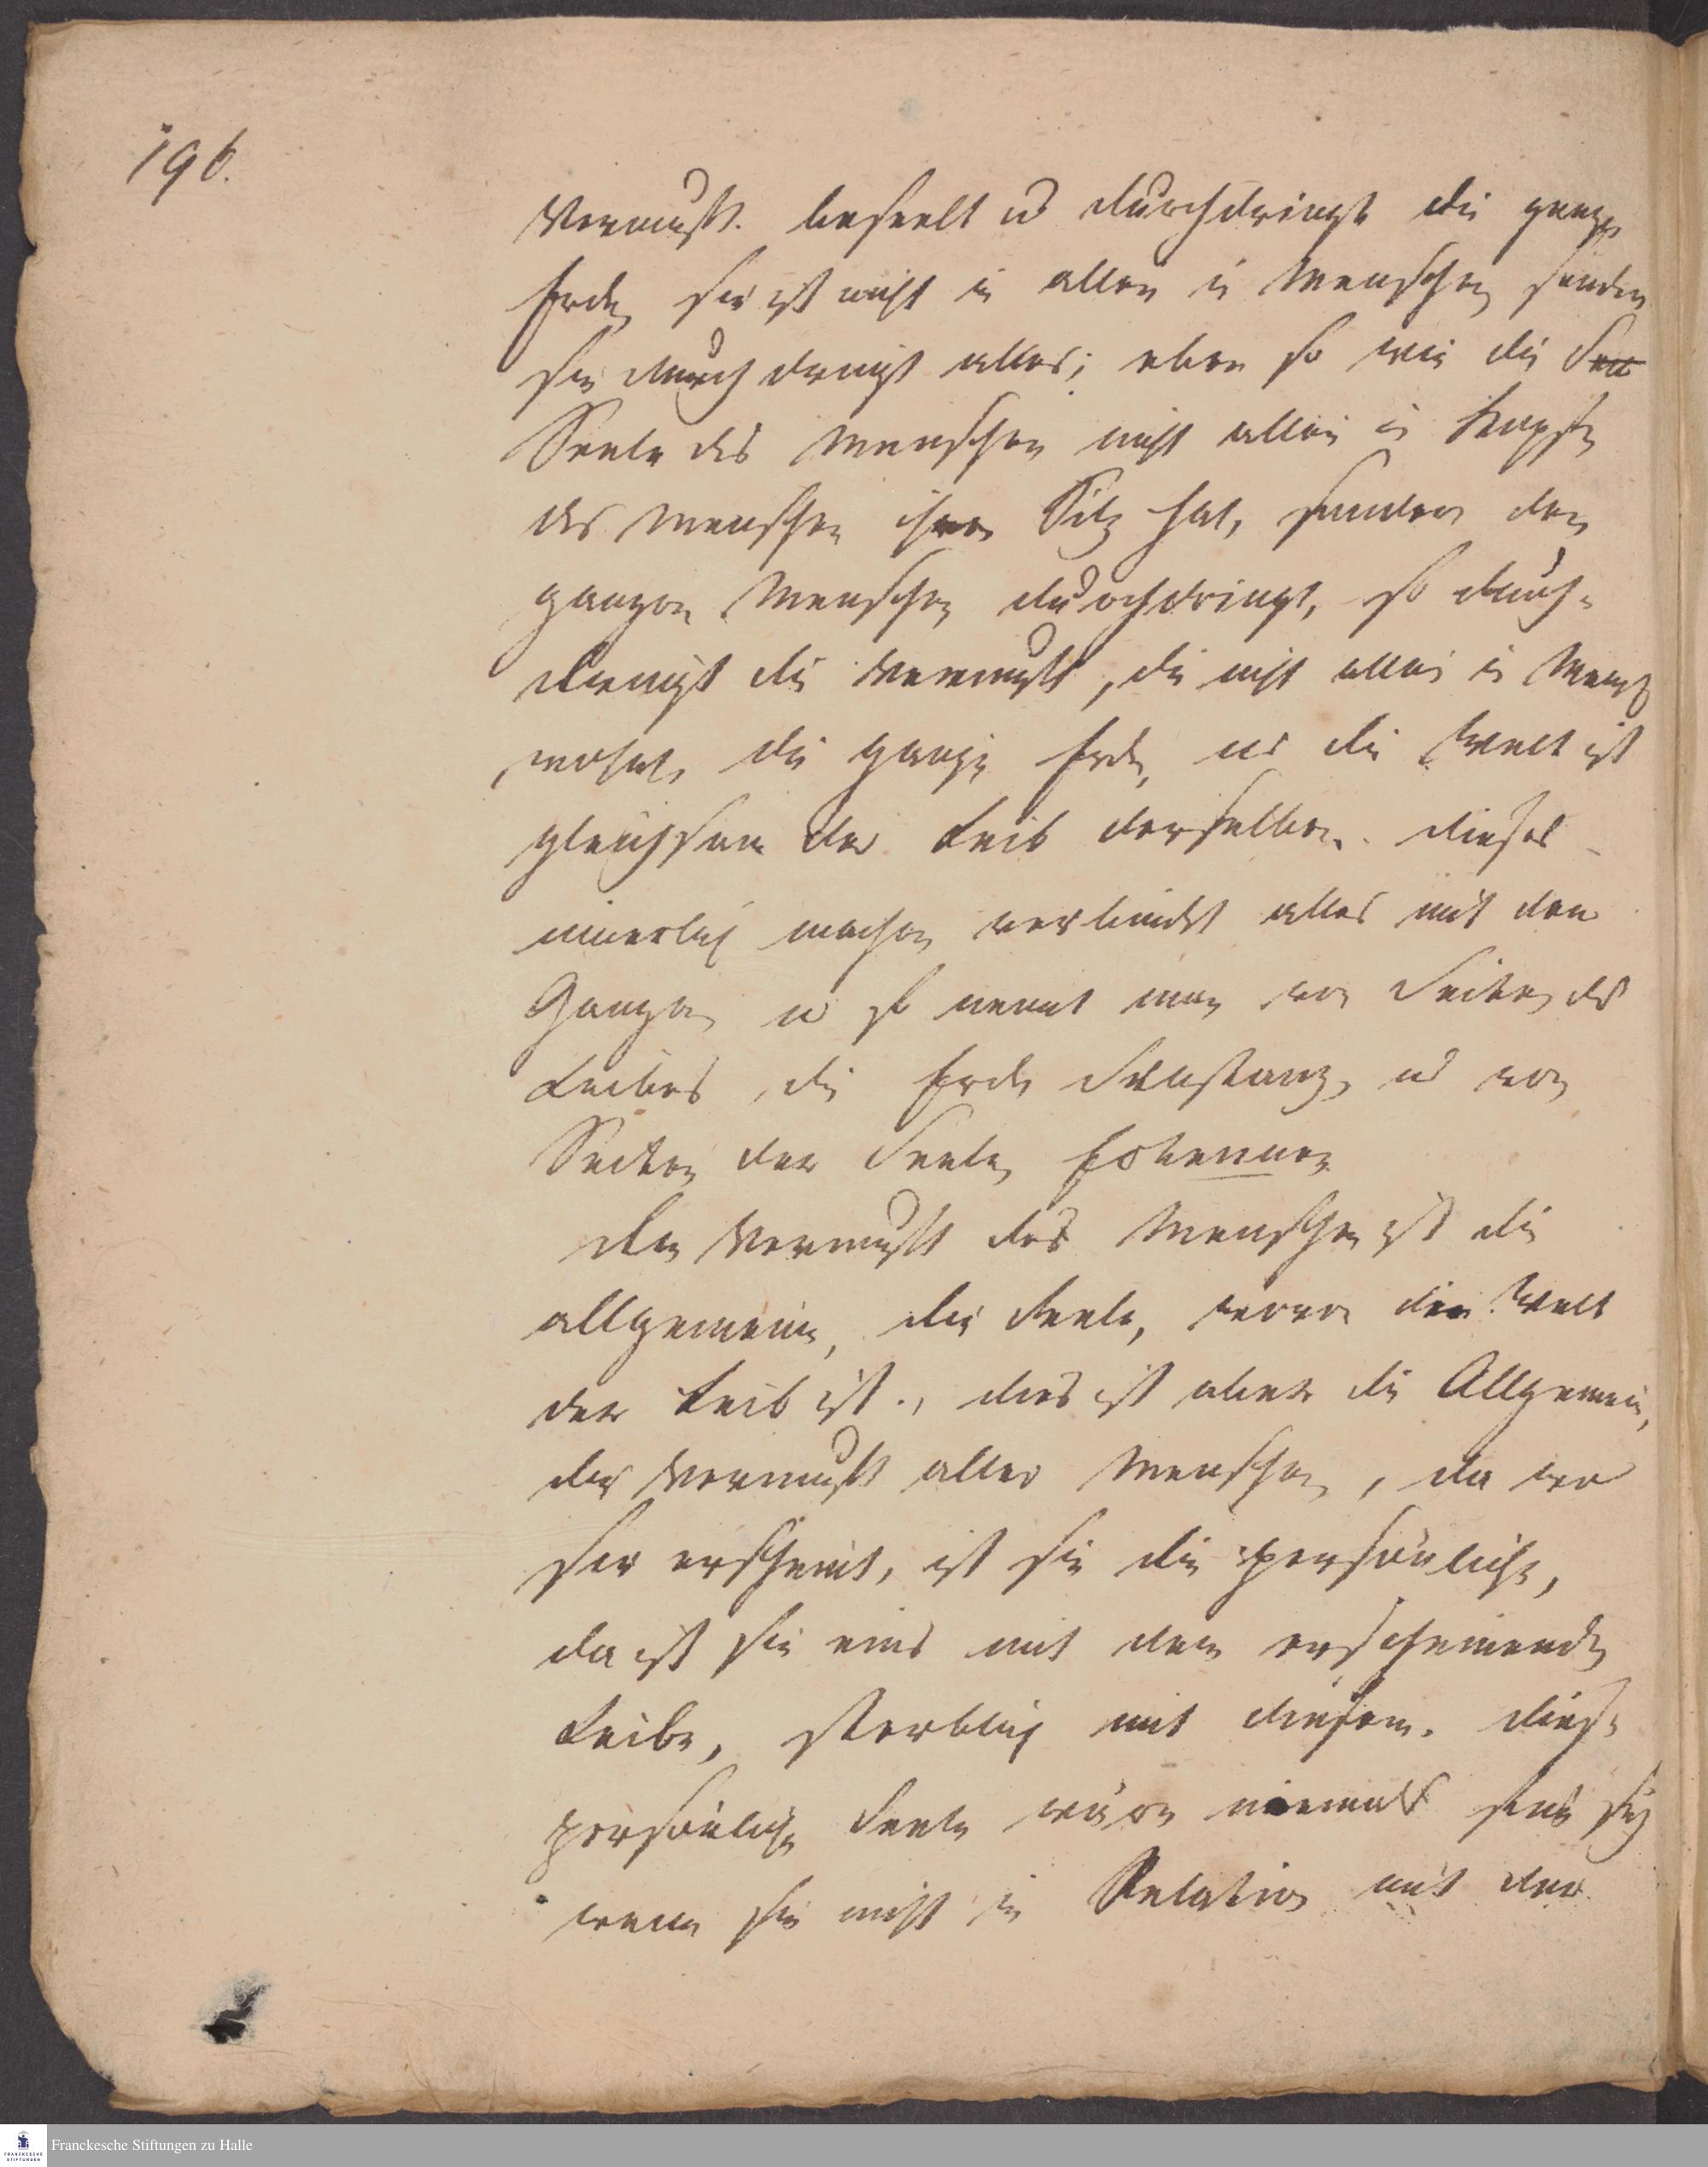 196.
Vernunft. beseelt u durchdringt die ganze
Erde, sie ist nicht in allein in Menschen sondern
sie durchdringt alles; eben so wie die See
Seele des Menschen nicht allein in Kopfe
des Menschen ihren Sitz hat, sondern den
ganzen Menschen durchdringt, so durch-
dringt die Vernunft, die nicht allein in Mensch
wohnt, die ganze Erde, u die Welt ist
gleichsam der Leib derselben. dieses
innerlich machen verbindet alles mit dem
Ganzen u so nennt man von Seiten des
Leibes, die Erde Substanz, u von
Seiten der Seele, Erkennen
Die Vernunft des Menschen ist die
allgemeine, die Seele, wovon die Welt
der Leib ist., dies ist aber die Allgemein,
die Vernunft aller Menschen, da wo
sie erscheint, ist sie die persönliche,
da ist sie eins mit dem erscheinenden
Leibe, sterblich mit diesem. diese
persönliche Seele wäre niemals sich
wenn sie nicht in Relation mit der
Franckesche Stiftungen zu Halle
FRANCKESCHE
STIFTUNGEN